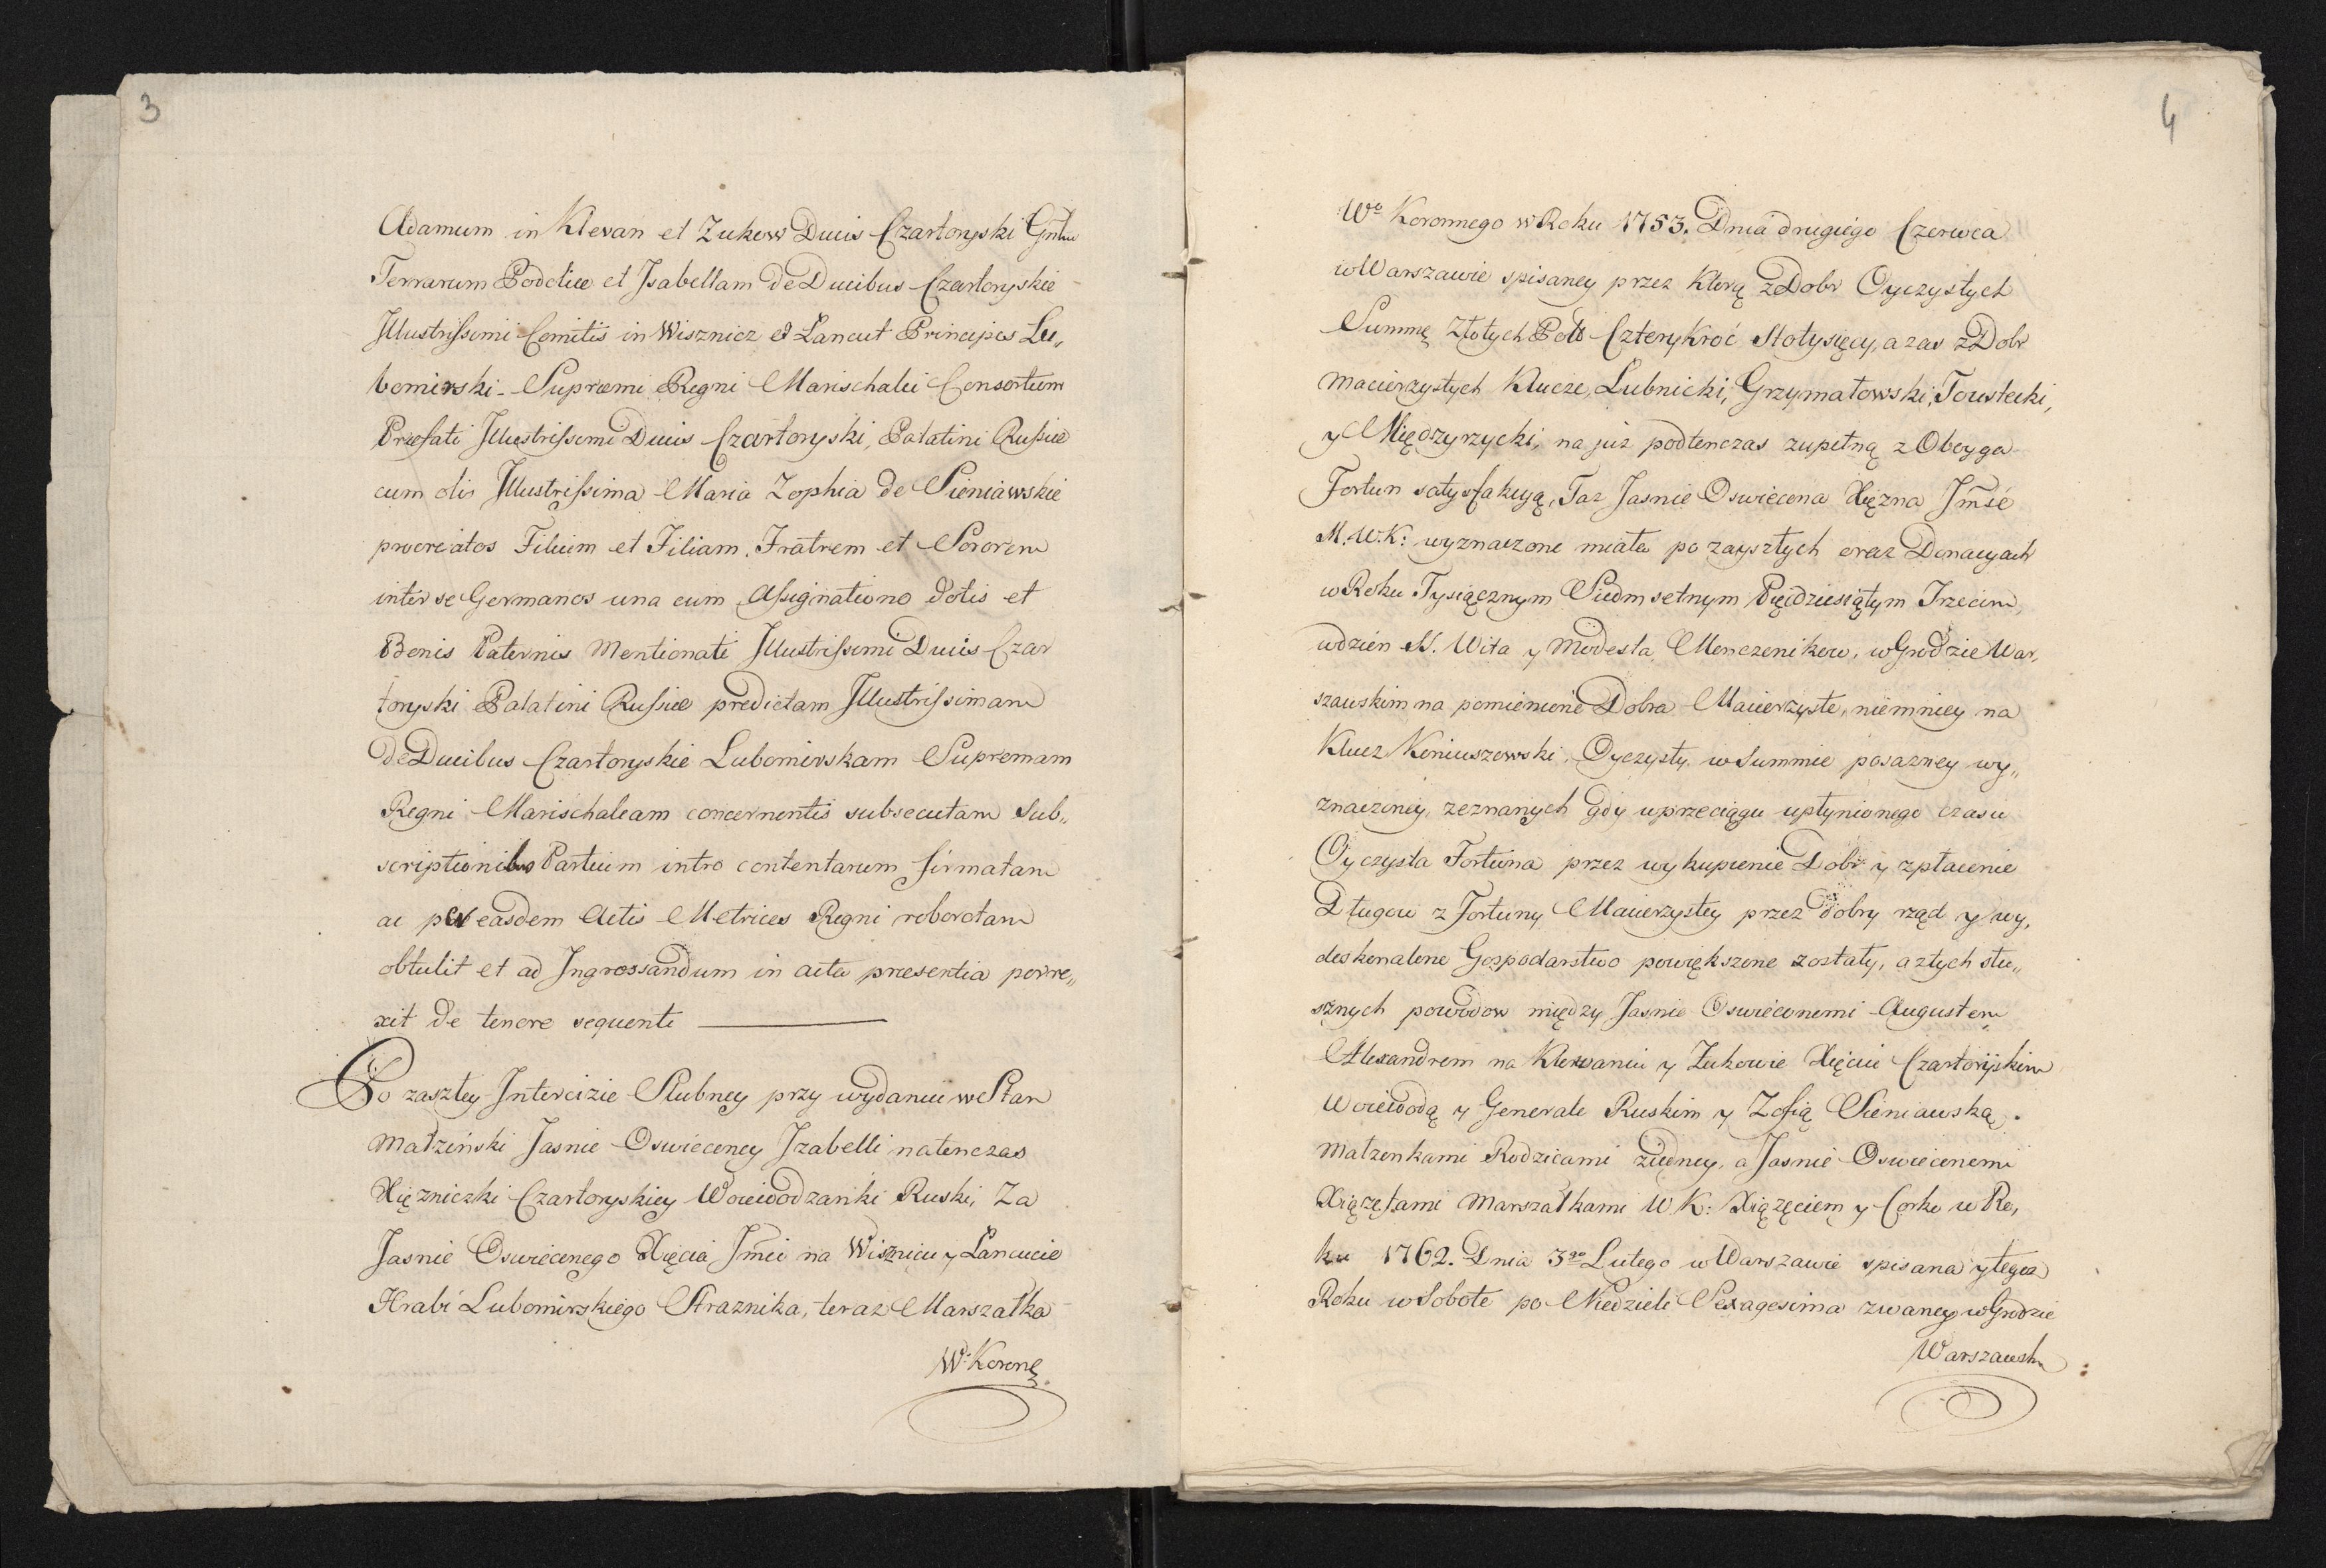 3
Adamum in Klevan et Zukow Ducis Czartoryski Gnlm
Terrarum Podoliæ et Isabellam De Ducibus Czartoryskie
Illustrissimi Comitis in Wisznicz et Lancut Principis Lu„
bomirski Supræmi Regni Marischalci Consortem
Præfati Illustrissimi Ducis Czartoryski, Palatini Russiæ
cum olis Illustrissima Maria Zophia de Sieniawskie
procreatos Filium et Filiam, Fratrem et Sororem
inter se Germanos una cum Assignationo dotis et
Bonis Paternis Mentionati Illustrissimi Ducis Czar
toryski Palatini Russiæ predictam Illustrissimam
de Ducibus Czartoryskie Lubomirskam Supremam
Regni Marischalcam concernentis subsecutam Sub„
scriptionibus Partium intro contentarum firmatam
ac per easdem Actis Metrices Regni roboratam
obtulit et ad Ingrossandum in acta præsentia porre„
xit de tenore sequenti
Po zaszłey Intercizie Slubney przy wydaniu w Stan
Małzinski Jasnie Oswieceney Izabelli natenczas
Xięzniczki Czartoryskiey Woiewodzanki Ruski, Za
Jasnie Oswieconego Xięcia Jmći na Wisznicu y Lancucie
Hrabi Lubomirskiego Straznika, teraz Marszałka
W. Koronę.
4
Wo Koronnego w Roku 1753. Dnia drugiego Czerwca
w Warszawie spisaney przez Ktorą z Dobr Oyczystych
Summę Złotych Pols Czterykroć Stotysięcy, a zas z Dobr
Macierzystych Klucze, Lubnicki, Grzymałowski, Toustecki,
y Międzyrzycki, na juz podtenczas zupełną z Oboyga
Fortun satysfakcyą, Taz Jasnie Oswiecona Xięzna Jmśc
M. W. K: wyznaczone miała po zaszłych oraz Donacyach
w Roku Tysiącznym Siedmsetnym Pięcdziesiątym Trzecim,
w dzien SS. Wita y Modesta Menczenikow, w Grodzie War„
szawskim na pomienione Dobra Macierzyste, niemniey na
Klucz Koniuszowski, Oyczysty w Summie posazney wy„
znaczoney, zeznanych gdy w przeciągu upłynionego czasu
Oyczysta Fortuna przez wykupienie Dobr y zpłacenie
Długow z Fortuny Macierzystey przez dobry rząd y wy„
doskonalone Gospodarstwo powiększone zostały, a z tych słu„
sznych powodow między Jasnie Oswieconemi Augustem
Alexandrem na Klewaniu y Zukowie Xięciu Czartoryskim
Woiewodą y Generale Ruskim y Zofią Sieniawską
Małzenkami Rodzicami ziedney, a Jasnie Oswieconemi
Xiązętami Marszałkami W. K: Xiązęciem y Corko w Ro„
ku 1762. Dnia 3go Lutego w Warszawie spisana y tegoz
Roku w Sobote po Niedzieli Sexagesima zwaney w Grodzie
Warszawskm